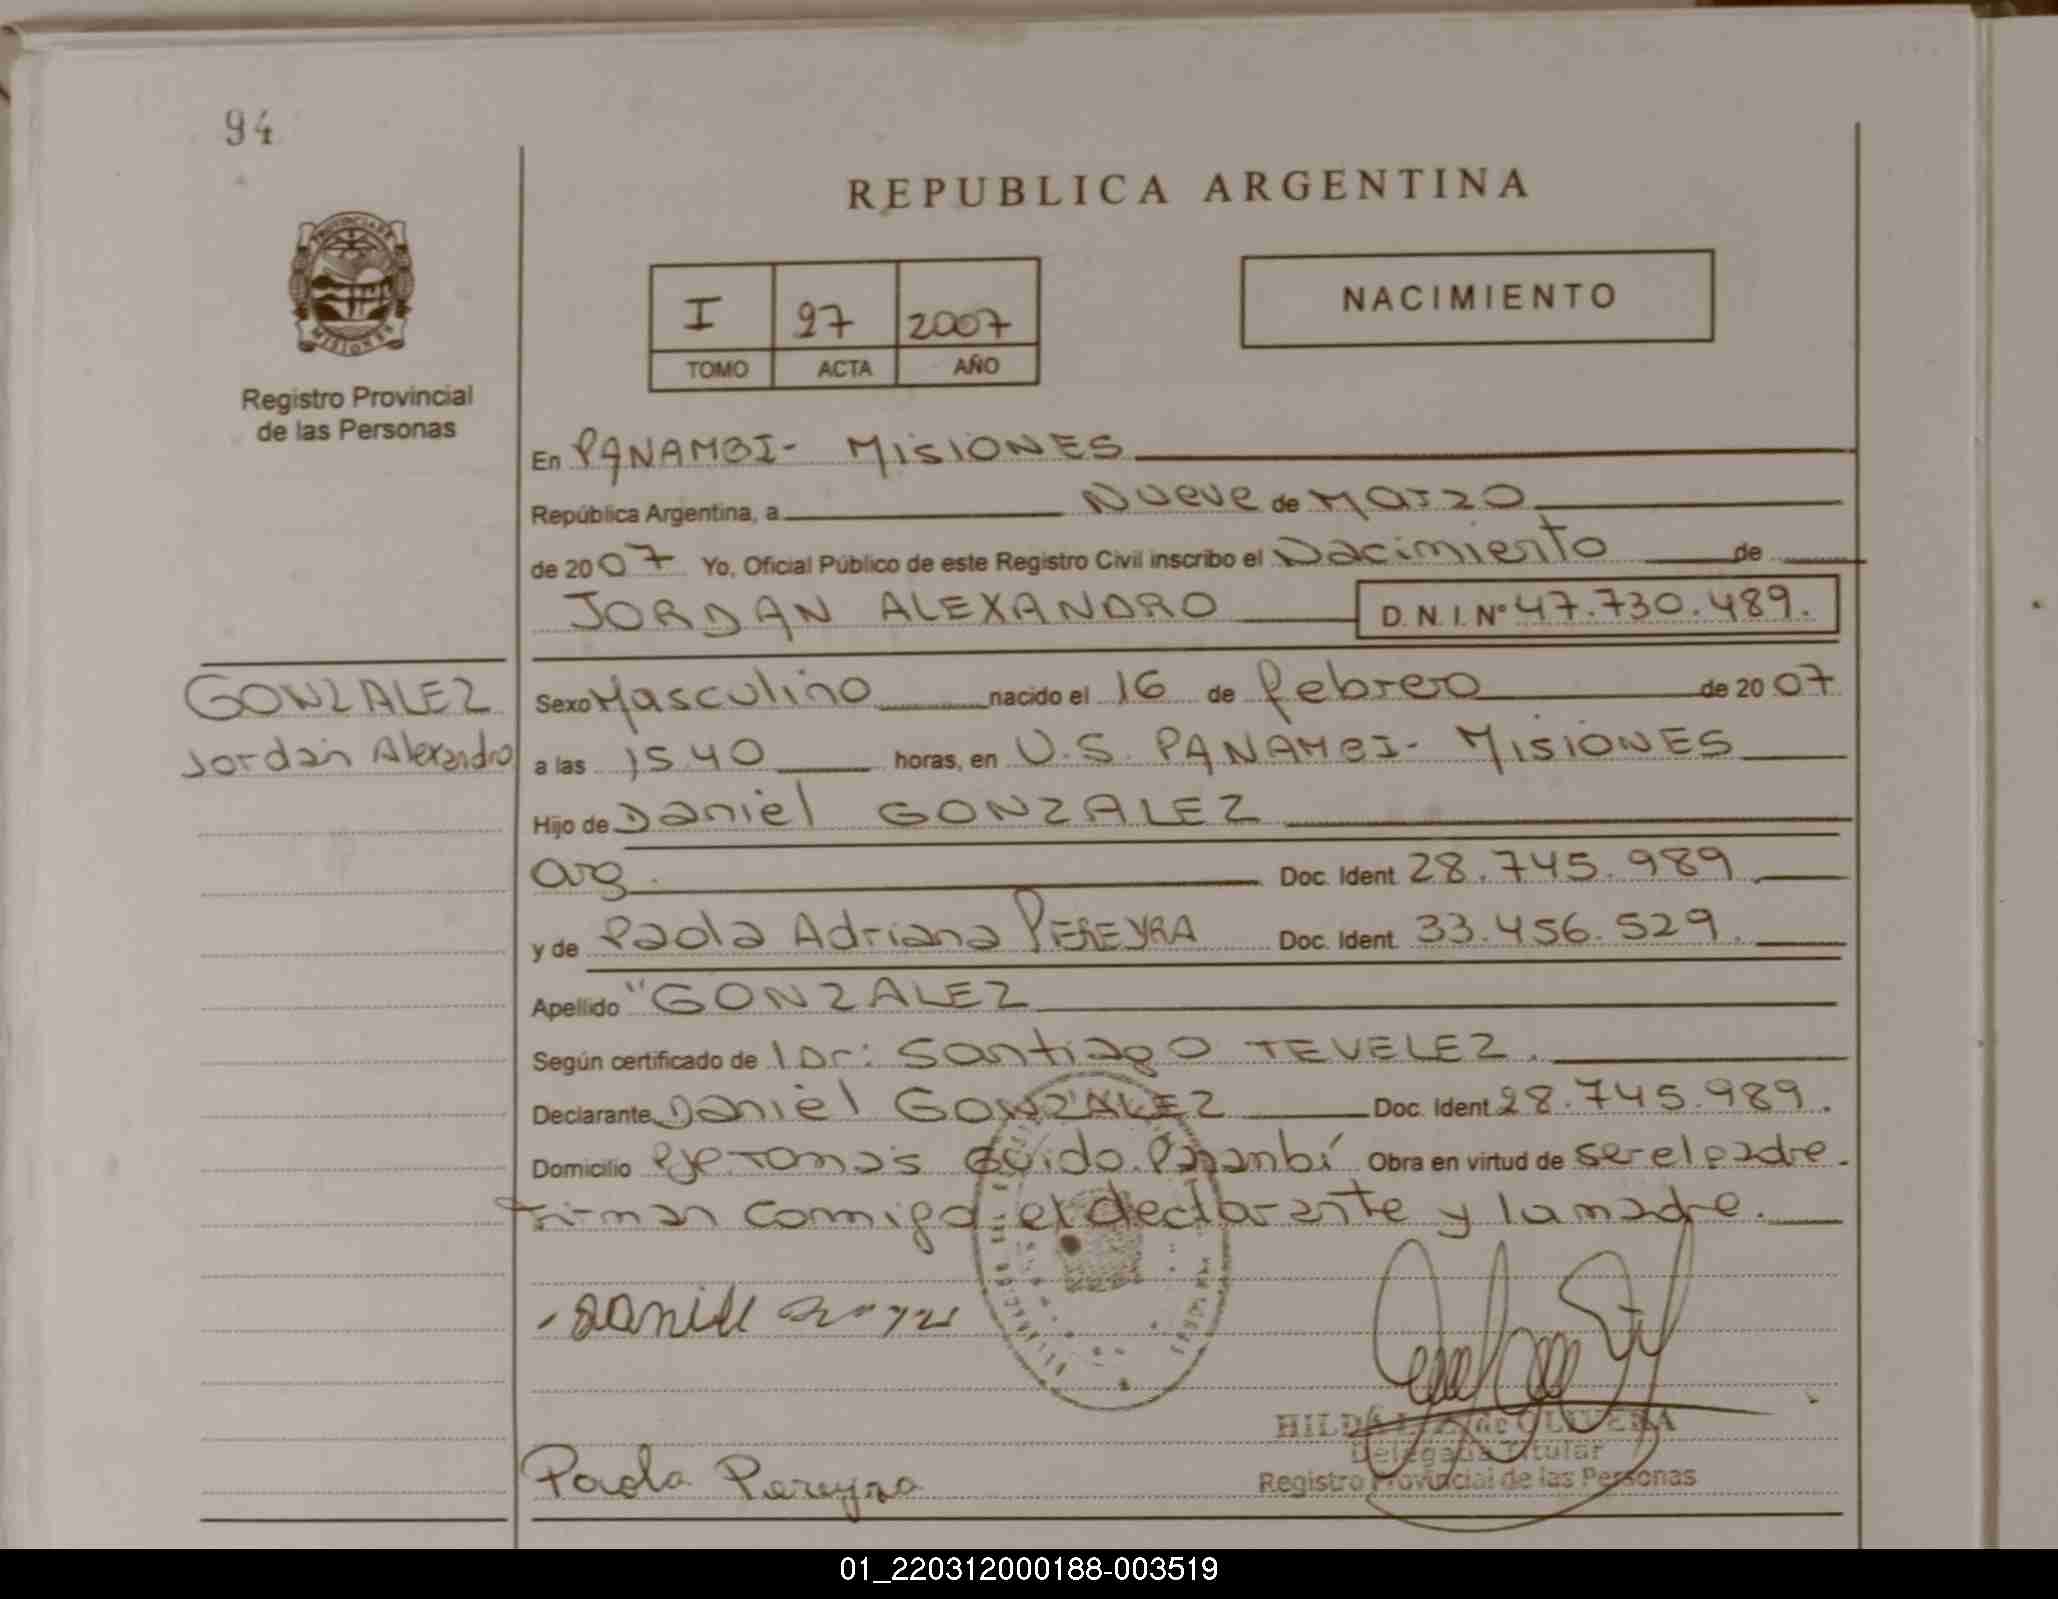 94
REPUBLICA ARGENTINA
PROVINCIA DE
MISIONES
I 97 2007
TOMO ACTA AÑO
NACIMIENTO
Registro Provincial
de las Personas
En PANAMBI- MISIONES
República Argentina, a Nueve de Marzo
de 2007 Yo, Oficial Público de este Registro Civil inscribo el Nacimiento de
JORDAN ALEXANDRO D.N.I.Nº 47.730.489.
GONZALEZ
Jordan Alexandro
Sexo Masculino nacido el 16 de febrero de 2007
a las 15.40 horas, en U.S. PANAMBI- MISIONES
Hijo de Daniel GONZALEZ
arg. Doc. Ident. 28.745.989
y de Paola Adriana PEREYRA Doc. Ident. 33.456.529.
Apellido "GONZALEZ
Según certificado de Dr: Santiago TEVELEZ.
Declarante Daniel GONZALEZ Doc. Ident. 28.745.989.
Domicilio Pje Tomas Guido. Panambí Obra en virtud de ser el padre.
Firman conmigo el declarante y la madre.
Daniel
Paola Pereyra
HILDA de OLIVERA
Delegada Titular
Registro Provincial de las Personas
01_220312000188-003519